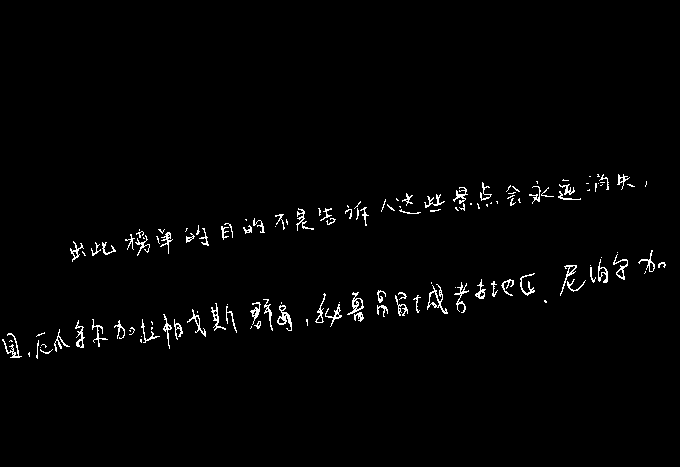 出此榜单的目的不是告诉人这些景点会永远消失,
国、厄瓜多尔加拉帕戈斯群岛,秘鲁昌昌城考古地区、尼泊尔加